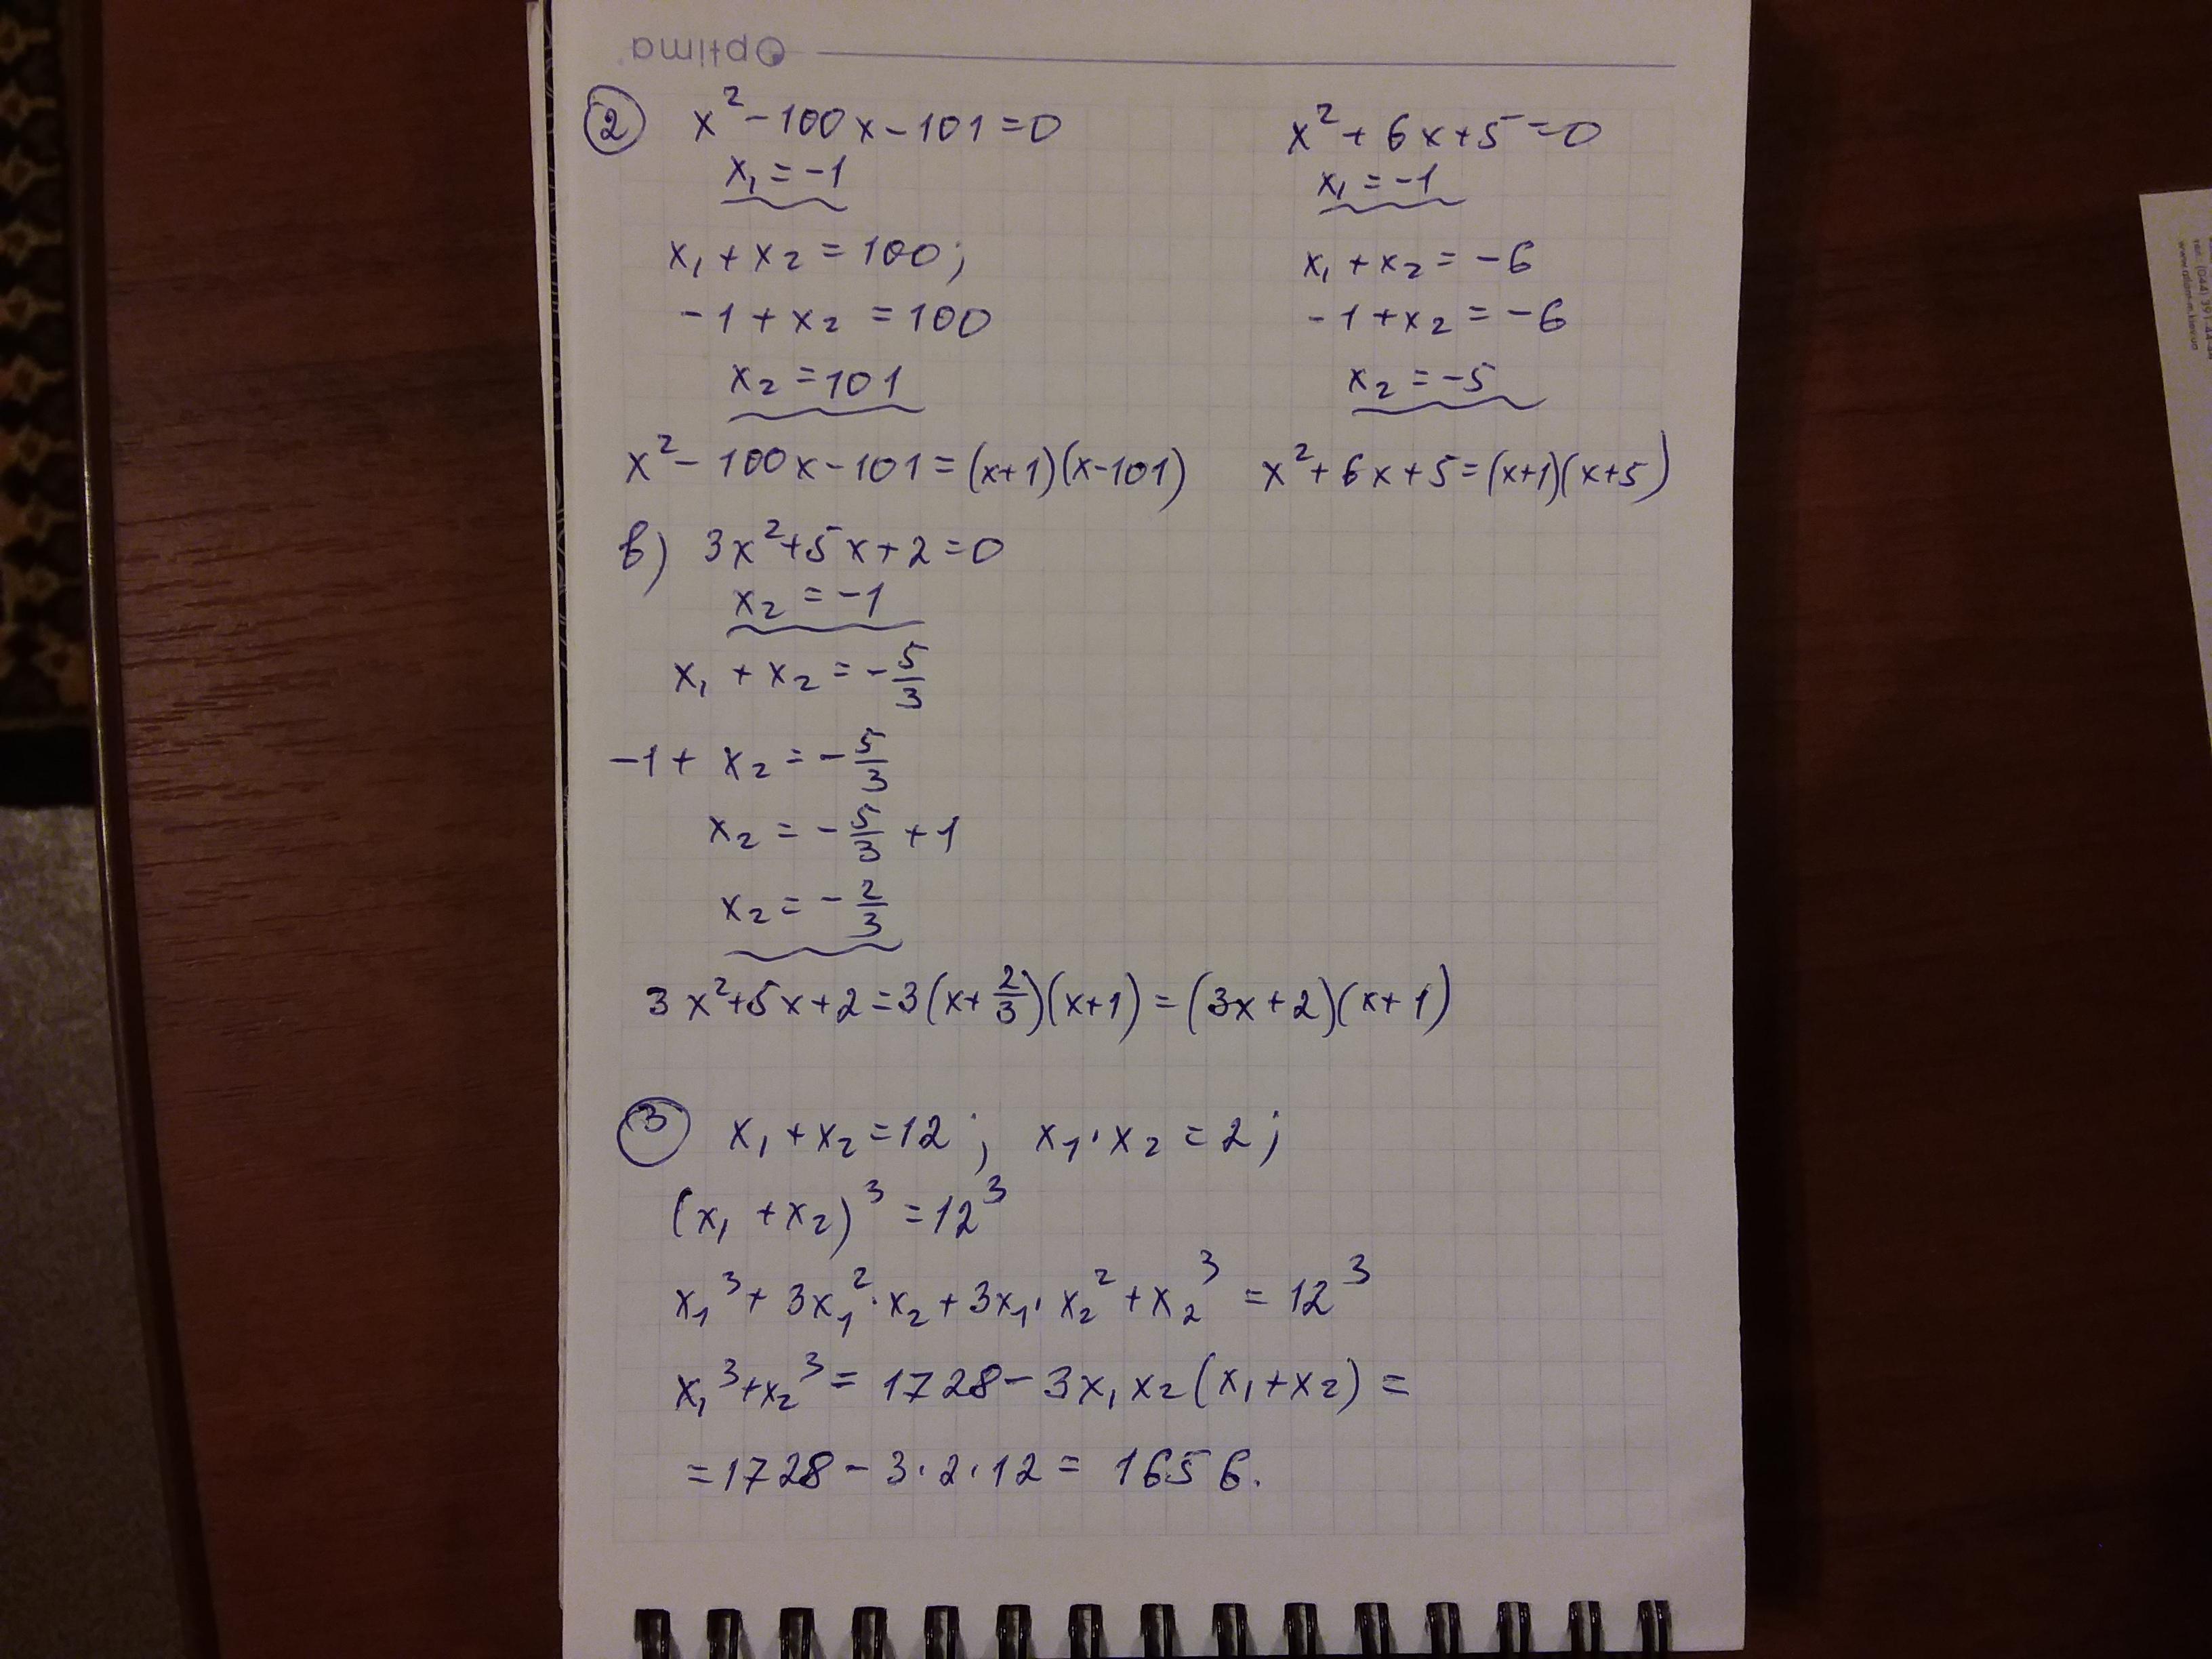 Optima
② x² - 100x - 101 = 0
x₁ = -1
x₁ + x₂ = 100;
-1 + x₂ = 100
x₂ = 101
x² - 100x - 101 = (x+1)(x-101)
x² + 6x + 5 = 0
x₁ = -1
x₁ + x₂ = -6
-1 + x₂ = -6
x₂ = -5
x² + 6x + 5 = (x+1)(x+5)
в) 3x² + 5x + 2 = 0
x₂ = -1
x₁ + x₂ = -5/3
-1 + x₂ = -5/3
x₂ = -5/3 + 1
x₂ = -2/3
3x² + 5x + 2 = 3(x + 2/3)(x+1) = (3x+2)(x+1)
③ x₁ + x₂ = 12; x₁ · x₂ = 2;
(x₁ + x₂)³ = 12³
x₁³ + 3x₁² · x₂ + 3x₁ · x₂² + x₂³ = 12³
x₁³ + x₂³ = 1728 - 3x₁x₂(x₁ + x₂) =
= 1728 - 3 · 2 · 12 = 1656.